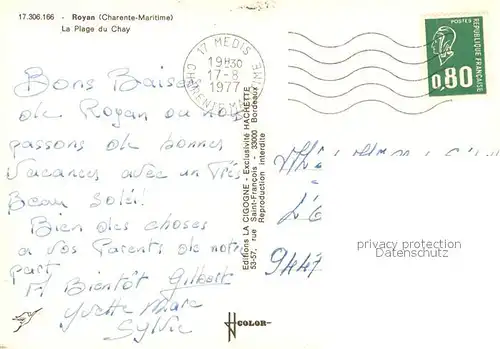 17.306.166 - Royan (Charente-Maritime)
La Plage du Chay
17 MEDIS
19H30
17-8
1977
CHARENTE-MARITIME
POSTES
REPUBLIQUE FRANÇAISE
0,80
Bons Baisers
de Royan ou nous
passons de bonnes
vacances avec un Très
Beau Soleil
Bien des choses
a vos Parents de notre
part
A Bientôt Gilbert
Yvette Marc
Sylvie
Editions LA CIGOGNE - Exclusivité HACHETTE
53-57, rue Saint-François - 33000 Bordeaux
Reproduction interdite
COLOR
9447
privacy protection
Datenschutz